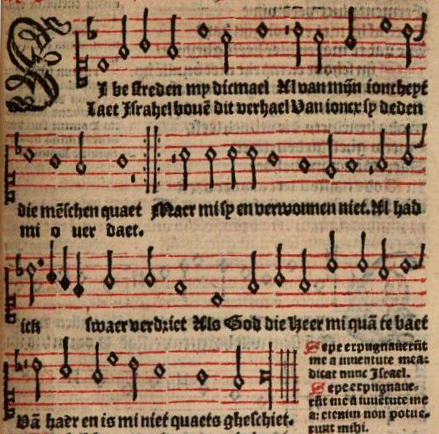 SI bestreden my dicmael Al van mijn ioncheyt
Laet Israhel bouē dit verhael Van ioncx sy deden
die mēschen quaet Maer mi sy en verwonnen niet. Al had
mi o uer daet.
ick swaer verdriet Als God die heer mi quā te baet
Vā haer en is mi niet quaets gheschiet.
Sepe expugnauerūt
me a iuuentute mea:
dicat nunc Israel.
Sepe expugnaue-
rūt me a iuuētute me
a: etenim non potue-
runt mihi.